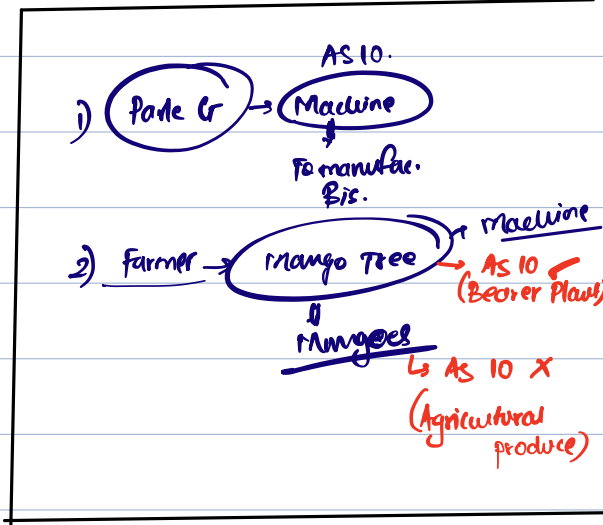 AS 10.
1) Parle G → Machine
To manufac.
Bis.
2) Farmer → Mango Tree → Machine
→ AS 10 ✓
(Bearer Plants)
Mangoes
↳ AS 10 X
(Agricultural
produce)